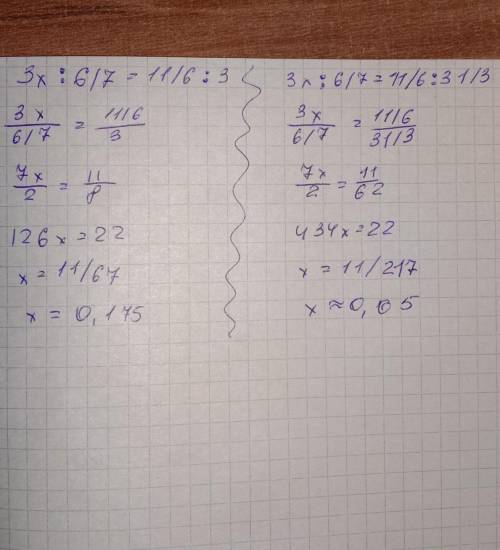 3x : 6/7 = 11/6 : 3
3x / 6/7 = 11/6 / 3
7x / 2 = 11 / 8
126x = 22
x = 11/67
x = 0,175
3x : 6/7 = 11/6 : 31/3
3x / 6/7 = 11/6 / 31/3
7x / 2 = 11 / 62
434x = 22
x = 11/217
x ≈ 0,05